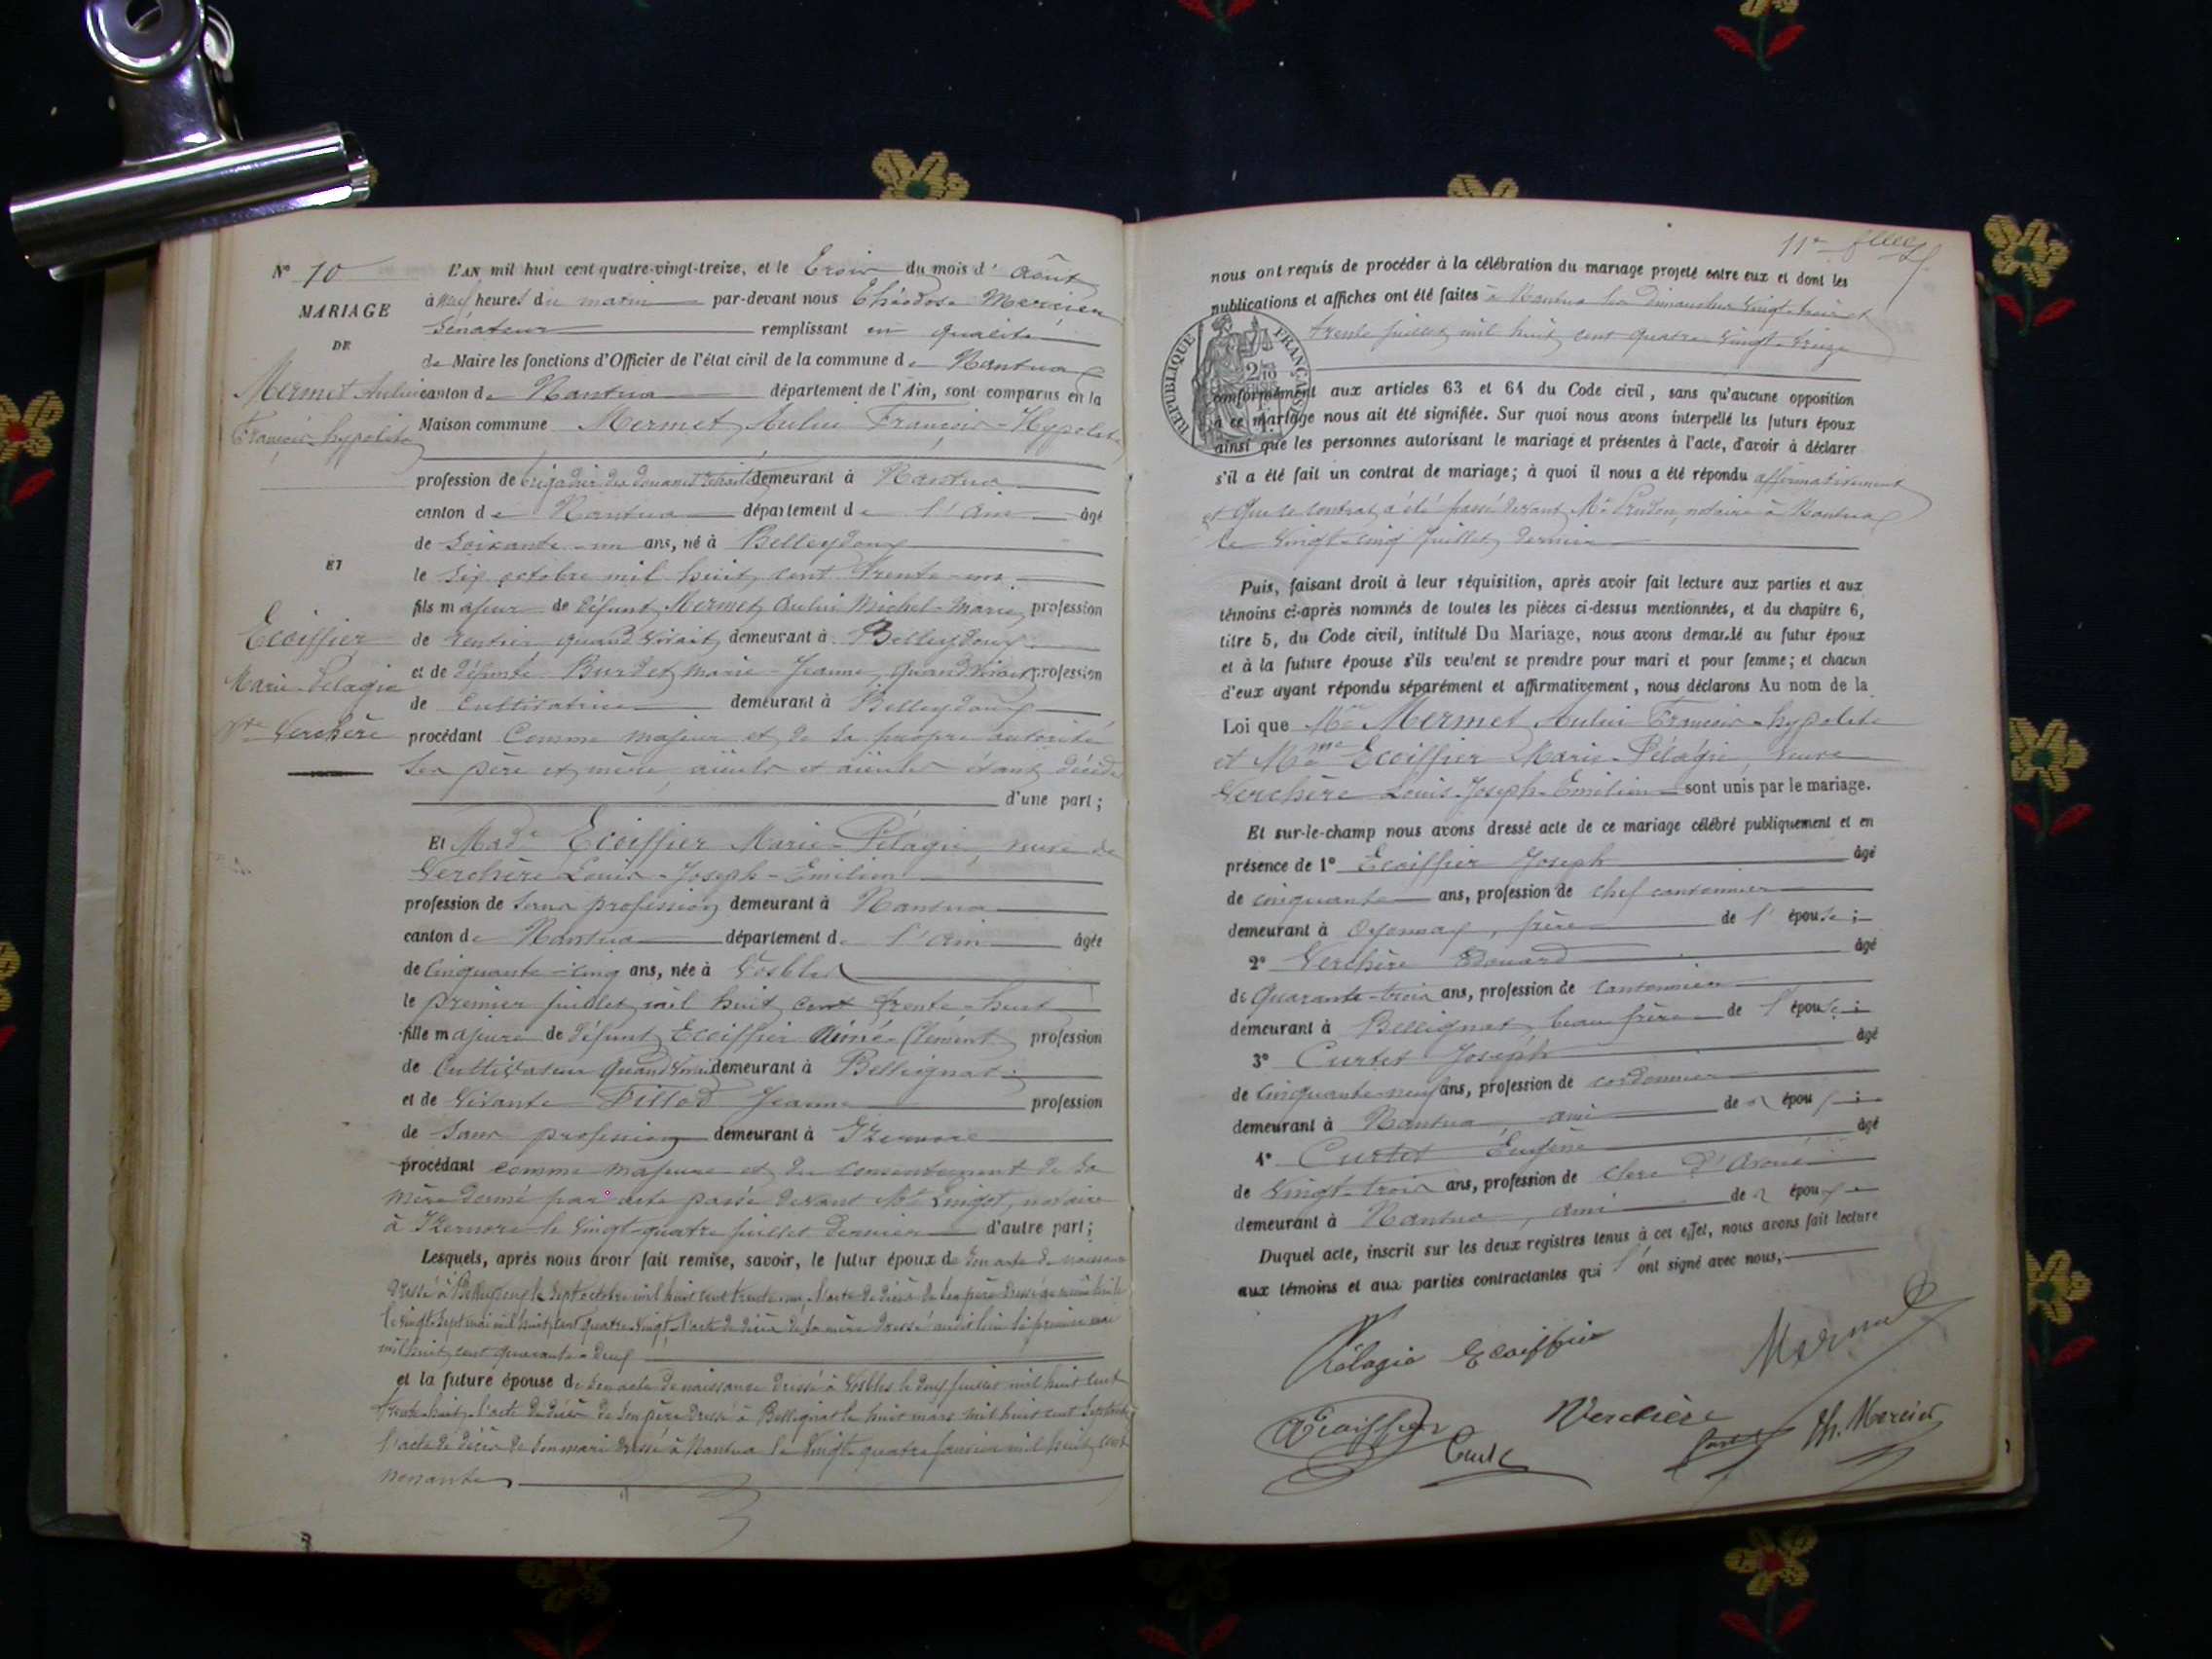 N° 10
MARIAGE
DE
Mermet Aului
François-hypolite
ET
Ecoiffier
Marie-Pélagie
Vve Verchère
L'AN mil huit cent quatre-vingt-treize, et le Trois du mois d' Août
à neuf heures du matin par-devant nous Théodose Mercier
Sénateur remplissant en qualité
de Maire les fonctions d'Officier de l'état civil de la commune de Nantua
canton de Nantua département de l'Ain, sont comparus en la
Maison commune Mermet Aului François-Hypolite
profession de brigadier des douanes retraité demeurant à Nantua
canton de Nantua département de l'Ain âgé
de soixante-un ans, né à Belleydoux
le six octobre mil huit cent trente-un
fils majeur de défunt Mermet Aului Michel-Marie profession
de rentier quand vivait demeurant à Belleydoux
et de défunte Burdet Marie-Jeanne, quand vivait profession
de Cultivatrice demeurant à Belleydoux
procédant Comme majeur et de sa propre autorité
ses père et mère, aïeuls et aïeules étant décédés
d'une part;
Et Made Ecoiffier Marie-Pélagie, veuve de
Verchère Louis-Joseph-Emilien
profession de sans profession demeurant à Nantua
canton de Nantua département de l'Ain âgée
de cinquante-cinq ans, née à Vosbles
le premier juillet mil huit cent trente-huit
fille majeure de défunt Ecoiffier Aimé-Clément profession
de Cultivateur quand vivait demeurant à Bellignat
et de vivante Tillod Jeanne profession
de sans profession demeurant à Izernore
procédant comme majeure et du consentement de sa
mère donné par acte passé devant Me notaire
à Izernore le vingt-quatre juillet dernier d'autre part;
Lesquels, après nous avoir fait remise, savoir, le futur époux de son acte de naissance
dressé à Belleydoux le sept octobre mil huit cent trente-un, l'acte de décès de son père dressé au même lieu le
le vingt-sept mai mil huit cent quatre-vingt, l'acte de décès de sa mère dressé audit lieu le premier mai
mil huit cent quarante-deux
et la future épouse de son acte de naissance dressé à Vosbles le deux juillet mil huit cent
trente-huit, l'acte de décès de son père dressé à Bellignat le huit mars mil huit cent septante
l'acte de décès de son mari dressé à Nantua le vingt-quatre janvier mil huit cent
nonante
11e
nous ont requis de procéder à la célébration du mariage projeté entre eux et dont les
publications et affiches ont été faites à Nantua les Dimanches vingt-trois et
trente juillet mil huit cent quatre-vingt-treize
REPUBLIQUE FRANÇAISE
conformément aux articles 63 et 64 du Code civil, sans qu'aucune opposition
à ce mariage nous ait été signifiée. Sur quoi nous avons interpellé les futurs époux
ainsi que les personnes autorisant le mariage et présentes à l'acte, d'avoir à déclarer
s'il a été fait un contrat de mariage; à quoi il nous a été répondu affirmativement
et que ce contrat a été passé devant Me Prudon, notaire à Nantua
le vingt-cinq juillet dernier
Puis, faisant droit à leur réquisition, après avoir fait lecture aux parties et aux
témoins ci-après nommés de toutes les pièces ci-dessus mentionnées, et du chapitre 6,
titre 5, du Code civil, intitulé Du Mariage, nous avons demandé au futur époux
et à la future épouse s'ils veulent se prendre pour mari et pour femme; et chacun
d'eux ayant répondu séparément et affirmativement, nous déclarons Au nom de la
Loi que Mr Mermet Aului François-hypolite
et Mme Ecoiffier Marie-Pélagie, Veuve
Verchère Louis-Joseph-Emilien sont unis par le mariage.
Et sur-le-champ nous avons dressé acte de ce mariage célébré publiquement et en
présence de 1° Ecoiffier Joseph âgé
de cinquante ans, profession de chef cantonnier
demeurant à Oyonnax, frère de l'épouse;
2° Verchère Edouard âgé
de quarante-trois ans, profession de cantonnier
demeurant à Bellignat, beau frère de l'épouse;
3° Curtet Joseph âgé
de cinquante-neuf ans, profession de cordonnier
demeurant à Nantua, ami des époux;
4° Curtet Eugène âgé
de vingt-trois ans, profession de clerc d'Avoué
demeurant à Nantua, ami des époux
Duquel acte, inscrit sur les deux registres tenus à cet effet, nous avons fait lecture
aux témoins et aux parties contractantes qui l'ont signé avec nous,
Pélagie Ecoiffier
Mermet
Ecoiffier
Verchère
Curt
Th. Mercier